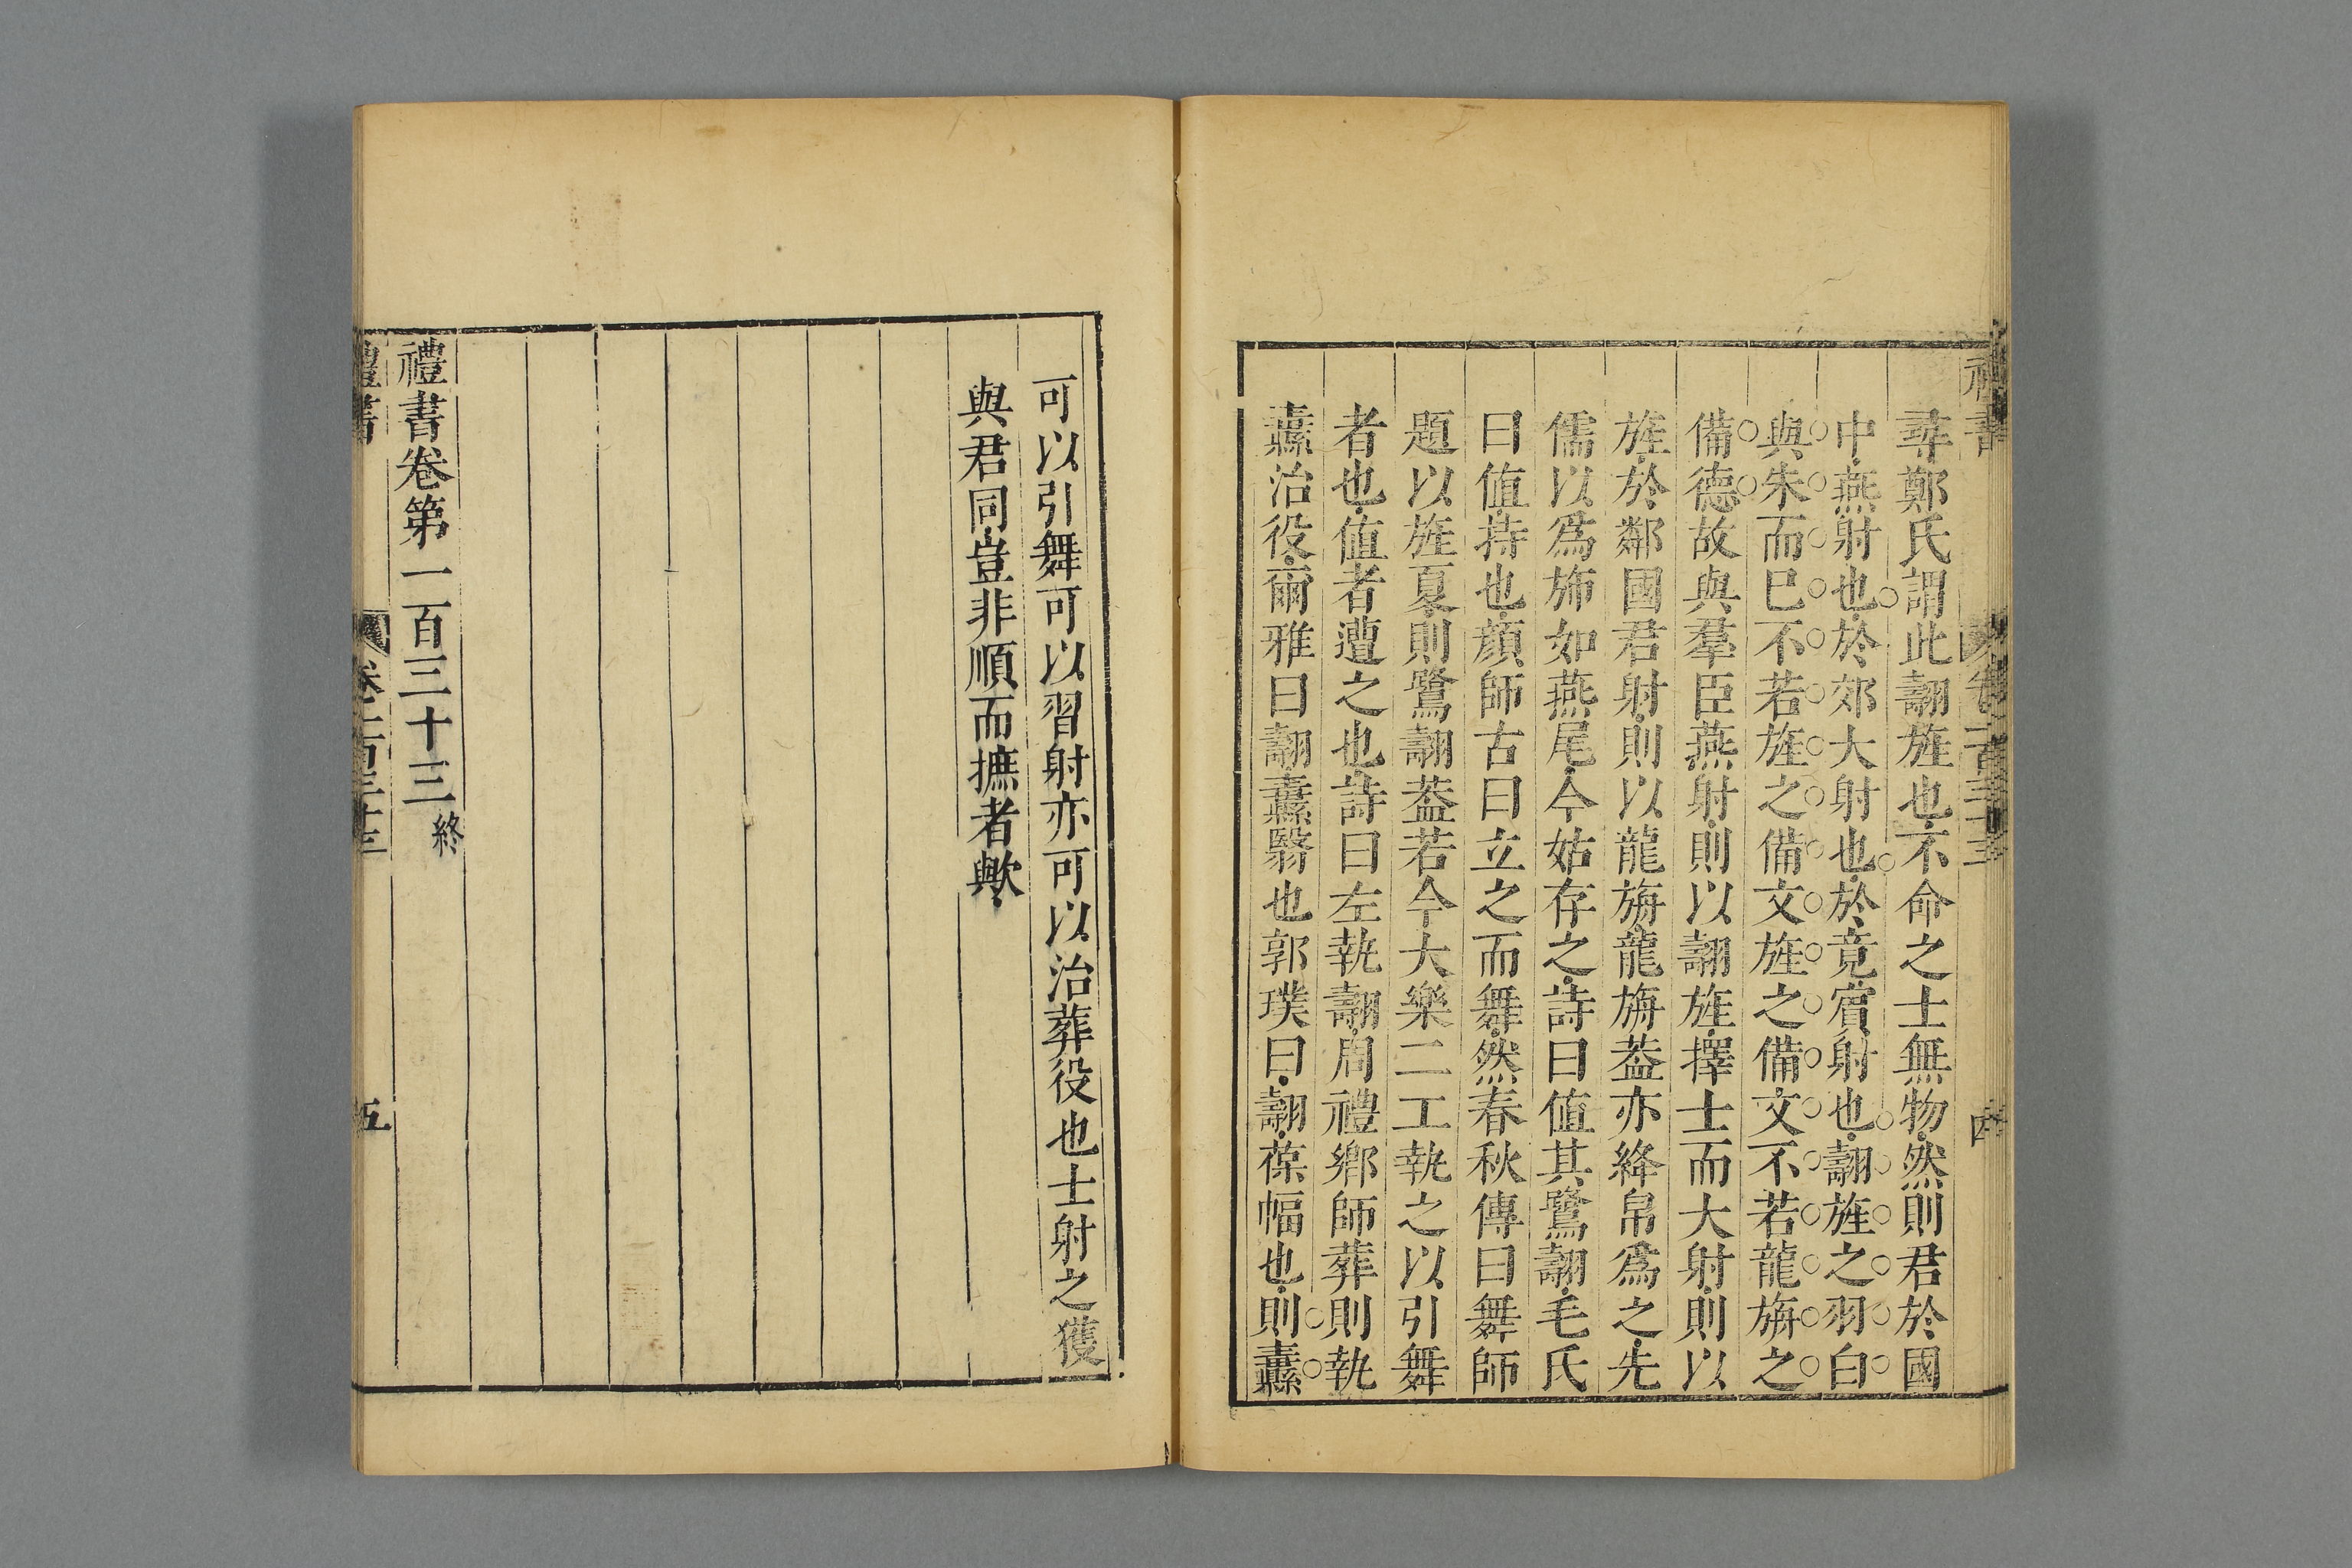 尋鄭氏謂此翿旌也不命之士無物然則君於國
中燕射也於郊大射也於竟賓射也翿旌之羽白
與朱而巳不若旌之備文旌之備文不若龍旜之
備德故與羣臣燕射則以翿旌擇士而大射則以
旌於鄰國君射則以龍旜龍旜葢亦絳帛爲之先
儒以爲斾如燕尾今姑存之詩曰值其鷺翿毛氏
曰值持也顔師古曰立之而舞然春秋傳曰舞師
題以旌夏則鷺翿葢若今大樂二工執之以引舞
者也值者遭之也詩曰左執翿周禮鄉師葬則執
纛治役爾雅曰翿纛翳也郭璞曰翿葆幢也則纛
禮書
卷一百三十三
四
可以引舞可以習射亦可以治葬役也士射之獲
與君同豈非順而摭者歟
禮書卷第一百三十三終
禮書
卷一百三十三
五